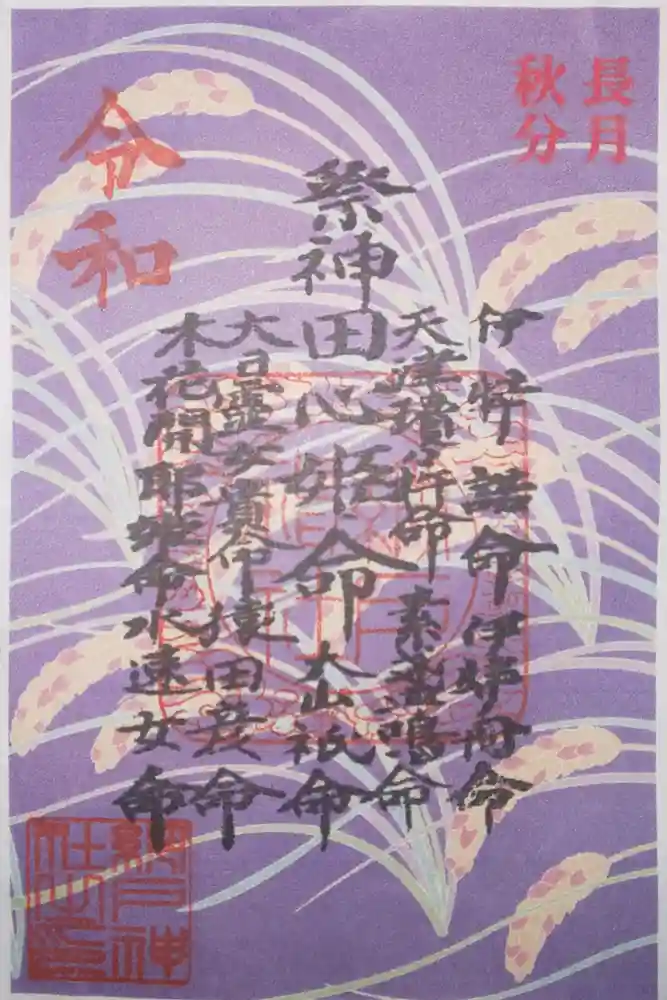 長月
秋分
伊弉諾命 伊弉冊命
天津瓊々杵命 素盞嗚命
祭神 田心姫命 大山祇命
大日靈女貴命 猿田彦命
木花開耶姫命 水速女命
令和